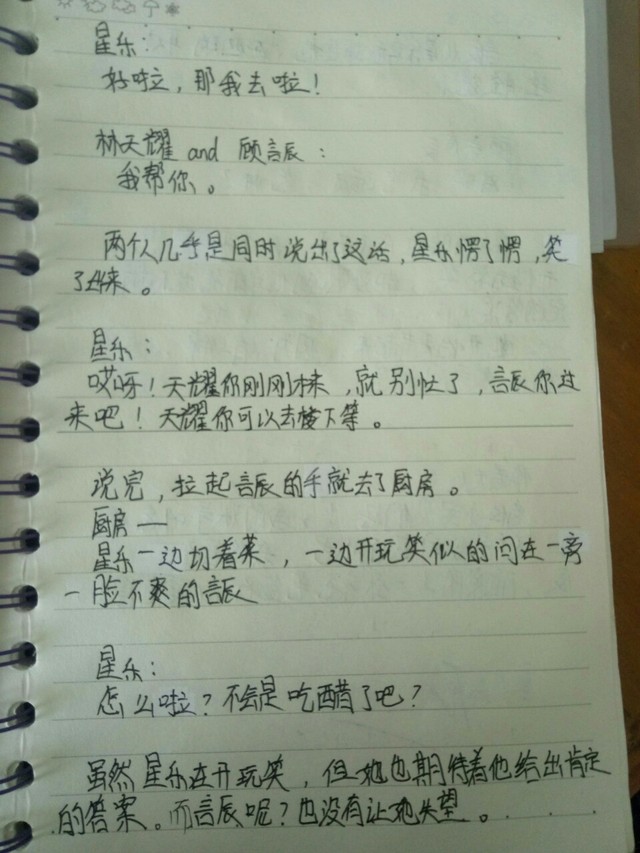 星乐：
好啦，那我去啦！
林天耀 and 顾言辰：
我帮你。
两个人几乎是同时说出了这话，星乐愣了愣，笑
了出来。
星乐：
哎呀！天耀你刚刚来，就别忙了，言辰你过
来吧！天耀你可以去楼下等。
说完，拉起言辰的手就去了厨房。
厨房——
星乐一边切着菜，一边开玩笑似的问在一旁
一脸不爽的言辰
星乐：
怎么啦？不会是吃醋了吧？
虽然星乐在开玩笑，但她也期待着他给出肯定
的答案。而言辰呢？也没有让她失望。